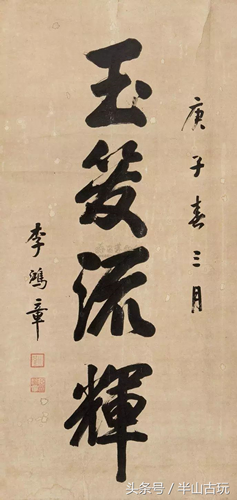 庚子春三月
玉笈流輝
李鴻章
头条号 / 半山古玩